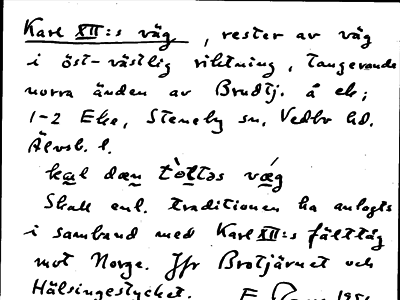 Karl XII:s väg, rester av väg
i öst-västlig riktning, tangerande
norra änden av Brudtj. å ek;
1-2 Eke, Steneby sn, Vedbo hd.
Älvsb. l.
kal dæn tòltəs vǽg
Skall enl. traditionen ha anlagts
i samband med Karl XII:s fälttåg
mot Norge. Jfr Brotjärnet och
Hälsingestycket. E